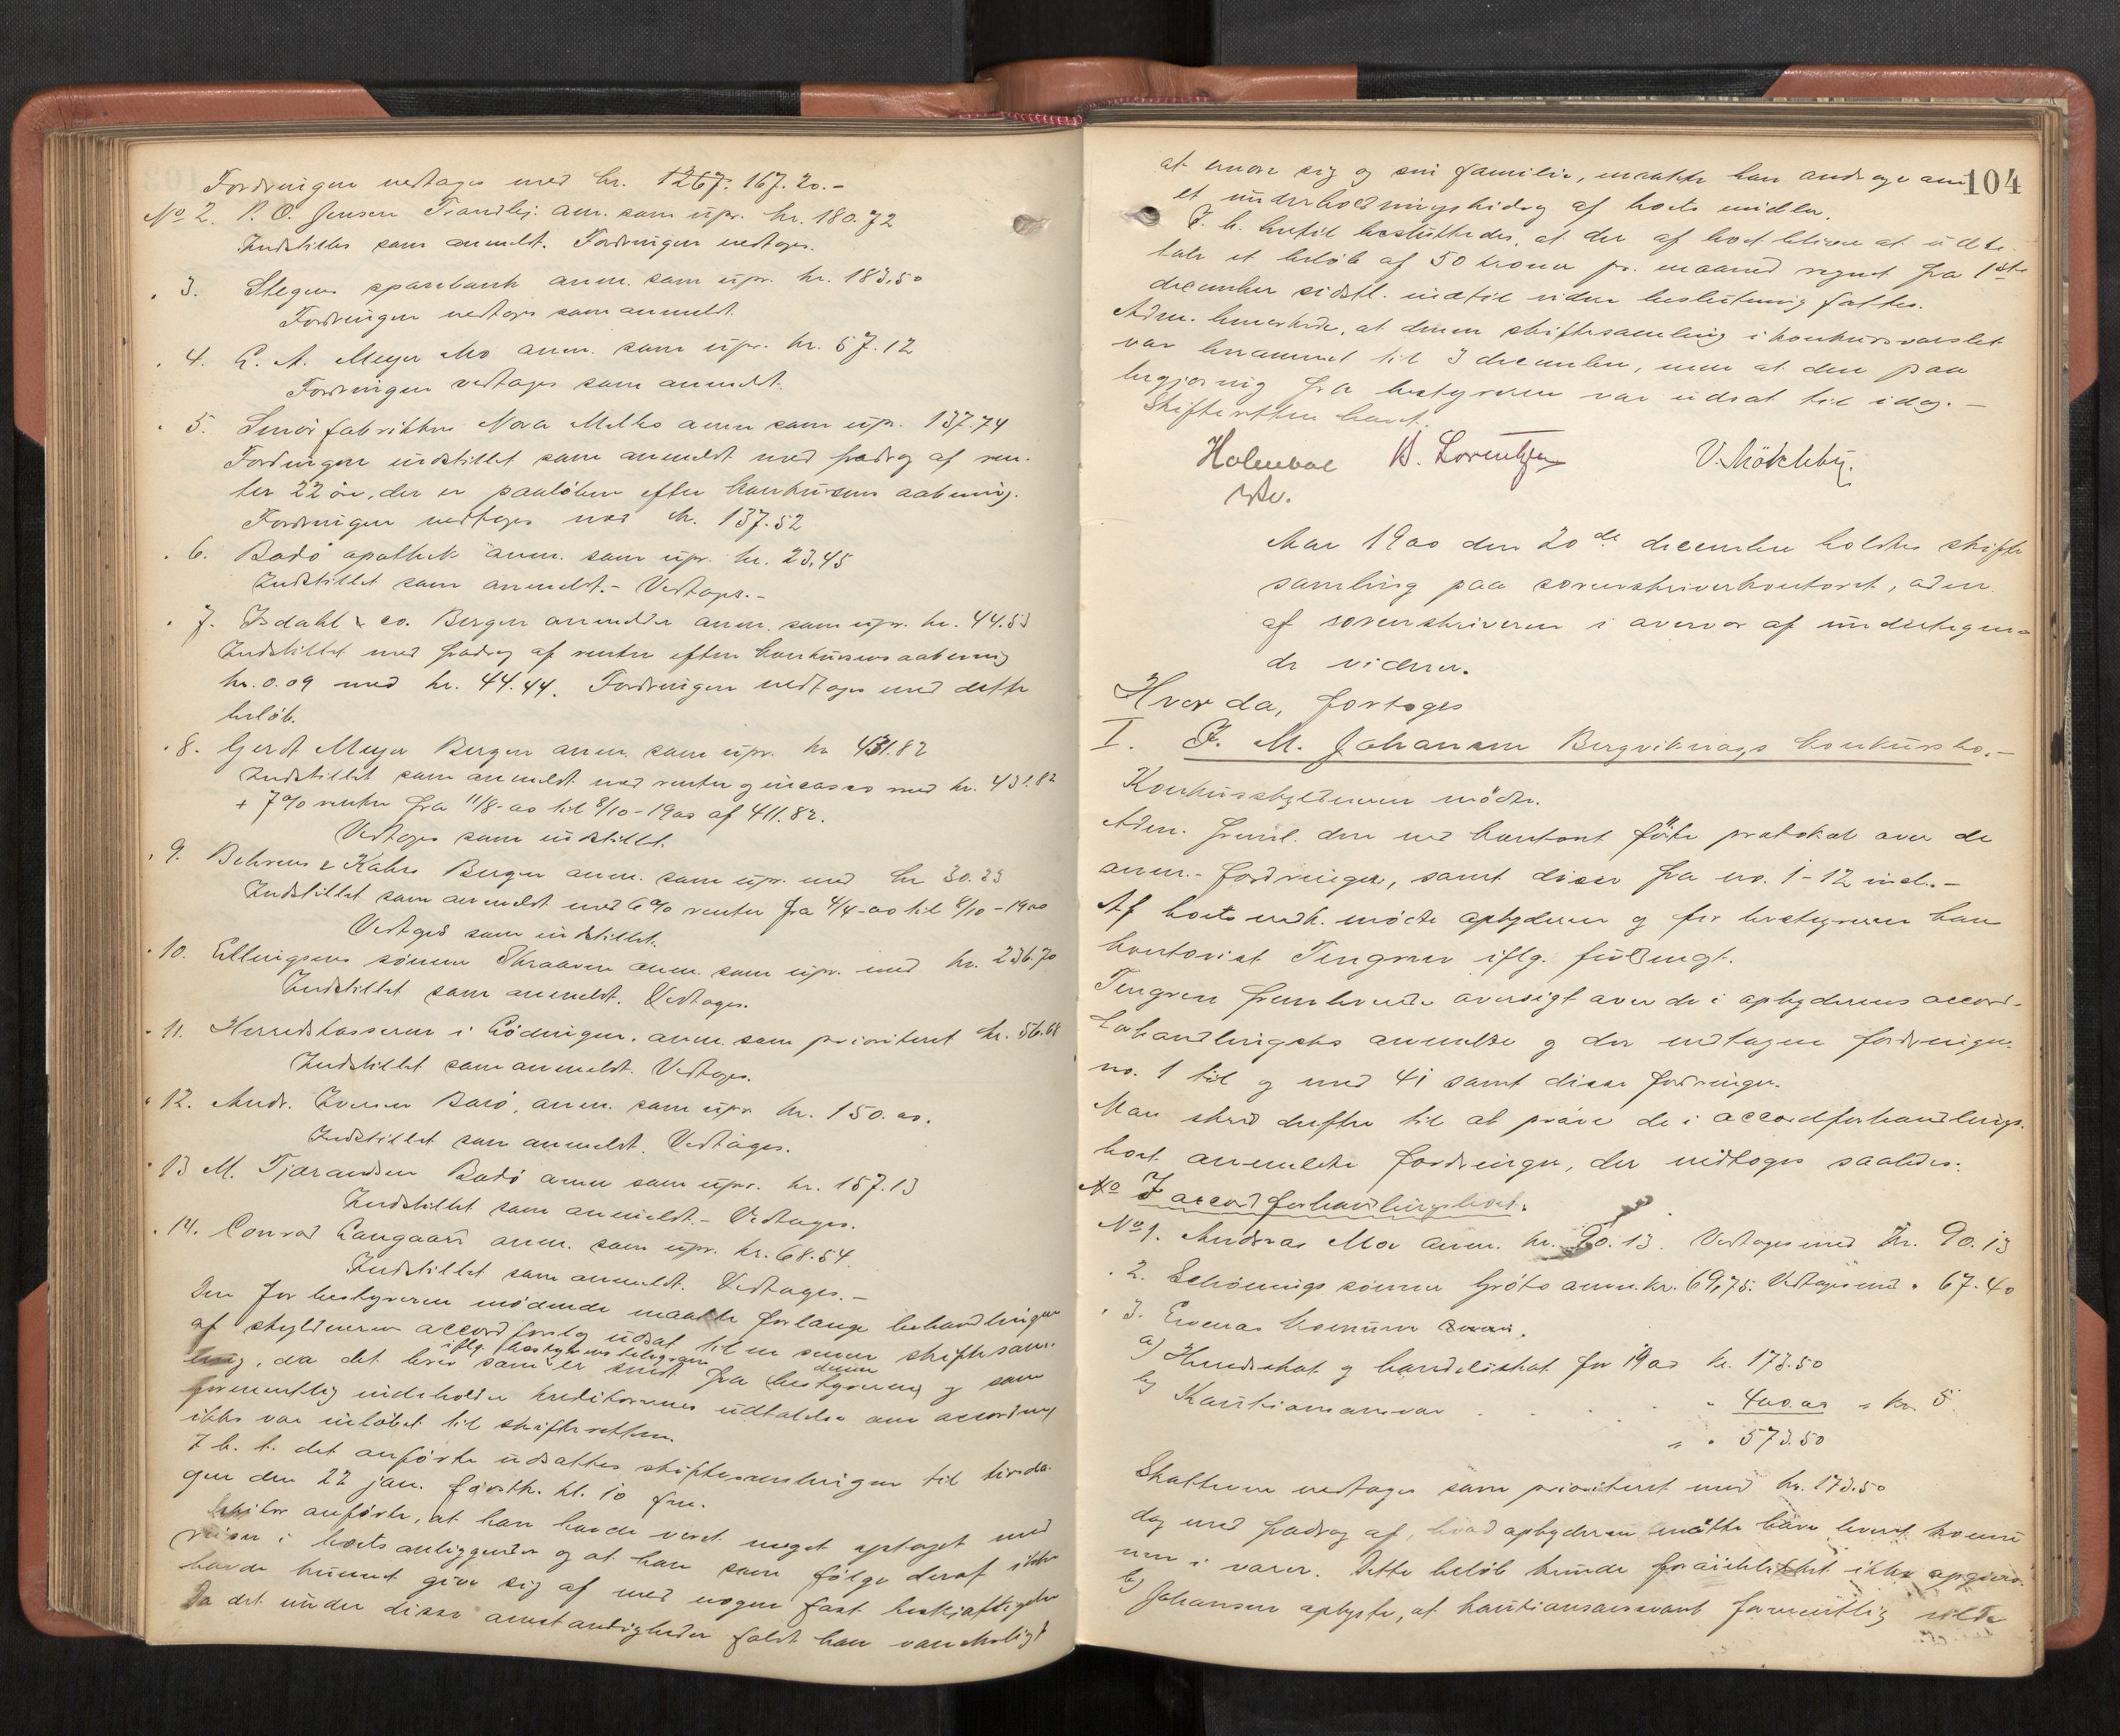 Fordringen vedtages med kr. 1267. 167.20.-
No 2. P. O. Jensen Trandhj. anm. som upr. kr. 180.72
Indstilles som anmeldt. Fordringen vedtages.
" 3. Stegens sparebank anm. som upr. kr. 183.50
Fordringen vedtages som anmeldt
" 4. C. A. Meyer Mo anm. som upr. kr. 57.12
Fordringen vedtages som anmeldt.
" 5. Smörfabrikken Nora Melbo anm som upr. 137.74
Fordringen indstillet som anmeldt med fradrag af ren-
ter 22 öre, der er paaløben efter konkursens aabning.
Fordringen vedtages med kr. 137.52
" 6. Bodö apothek anm. som upr. kr. 23.45
Indstillet som anmeldt.- Vedtages.-
" 7. Isdahl & co. Bergen anmelder anm. som upr. kr. 44.53
Indstillet med fradrag af renter efter konkursens aabning
kr. 0.09 med kr. 44.44. Fordringen vedtages med dette
beløb.
" 8. Gerdt Meyer Bergen anm. som upr. kr 431.82
Indstillet som anmeldt med renter og incasso med kr. 431.82
+ 7% renter fra 11/8-00 til 8/10-1900 af 411.82.
Vedtages som indstillet.
" 9. Behrens & Kahrs Bergen anm. som upr. med kr 30.23
Indstillet som anmeldt med 6% renter fra 4/4-00 til 8/10-1900
Vedtages som indstillet.
" 10. Ellingsens sønner Skraaven anm. som upr. med kr. 236.70
Indstillet som anmeldt. Vedtages.
" 11. Herredskassereren i Lödingen, anm. som prioriteret kr. 56.68
Indstillet som anmeldt. Vedtages.
" 12. Andr. Iversen Bodö, anm. som upr kr. 150.00.
Indstillet som anmeldt. Vedtages.
" 13 M. Tjærandsen Bodö anm som upr. kr. 157.13
Indstillet som anmeldt.- Vedtages.
" 14. Conrad Langaard anm. som upr. kr. 68.54.
Indstillet som anmeldt. Vedtages.-
Den for bestyreren mødende maatte forlange behandlingen
af skyldnerens accordforslag udsat til en senere skiftesam-
iflg. bestyrerens telegram denne
ling, da det brev som er sendt fra bestyreren og som
formentlig indeholder kreditorernes udtalelse om accorden
ikke var indløbet til skifteretten.
I h. t. det anførte udsattes skiftesamlingen til tirsda-
gen den 22 jan. førstk. kl. 10 fm.
anførte, at han havde veret meget optaget med
reiser i boets anliggender og at han som følge deraf ikke
havde kunnet give sig af med nogen fast beskjæftigelse
Da det under disse omstændigheder faldt han vanskeligt
104
at ernære sig og sin familie, maatte han andrage om
et underholdningsbidrag af boets midler.
I h. hertil besluttedes, at der af boet bliver at udbe-
tale et beløb af 50 kroner pr. maaned regnet fra 1ste
december sidstl. indtil viden beslutning fattes.
Adm. bemerkede, at denne skiftesamling i konkursvarslet
var berammet til 3 december, men at den paa
begjæring fra bestyreren var udsat til idag.-
Skifteretten hævet.
Holmboe B. Lorentzen V. Mökleby.
Aar 1900 den 20de december holdtes skifte
samling paa sorenskriverkontoret, adm.
af sorenskriveren i overvær af undertegne-
de vidner.
Hvor da, fortoges
I. J. M. Johansen Bergviknags konkursbo.-
Konkursskyldneren mødte.
Adm. freml. den ved kontoret førte protokol over de
anm.- fordringer, samt disse fra no. 1-12 incl.-
Af boets vedk. mødte opbyderen og for bestyreren hans
kontorist Tengren iflg. fuldmagt.
Tengren fremlevede oversigt over de i opbyderens accord-
forhandlingsbo anmeldte og der vedtagne fordringer
no. 1 til og med 41 samt disse fordringer.
Man skred derefter til at prøve de i accordforhandlings-
boet anmeldte fordringer, der vedtoges saaledes:
No I accordforhandlingsboet.
No 1. Andreas Moe anm. kr. 90.13. Vedtages med Kr. 90.13
" 2. Schönnings sönner Gröto anm. kr. 69,75. Vedtages med " 67.40
" 3. Evenæs kommune
a) Herredsskat og handelsskat for 1900 kr. 173.50
b) Kautionsansvar . . . . " 400.00 = Kr. 5
" " 573.50
Skatterne vedtages som prioriteret med kr. 173.50
dog med fradrag af, hvad opbyderen måtte have levert kommu
nen i varer. Dette beløb kunde for øieblikket ikke opgives.
b) Johansen oplyste, at kautionsansvaret formentlig vilde